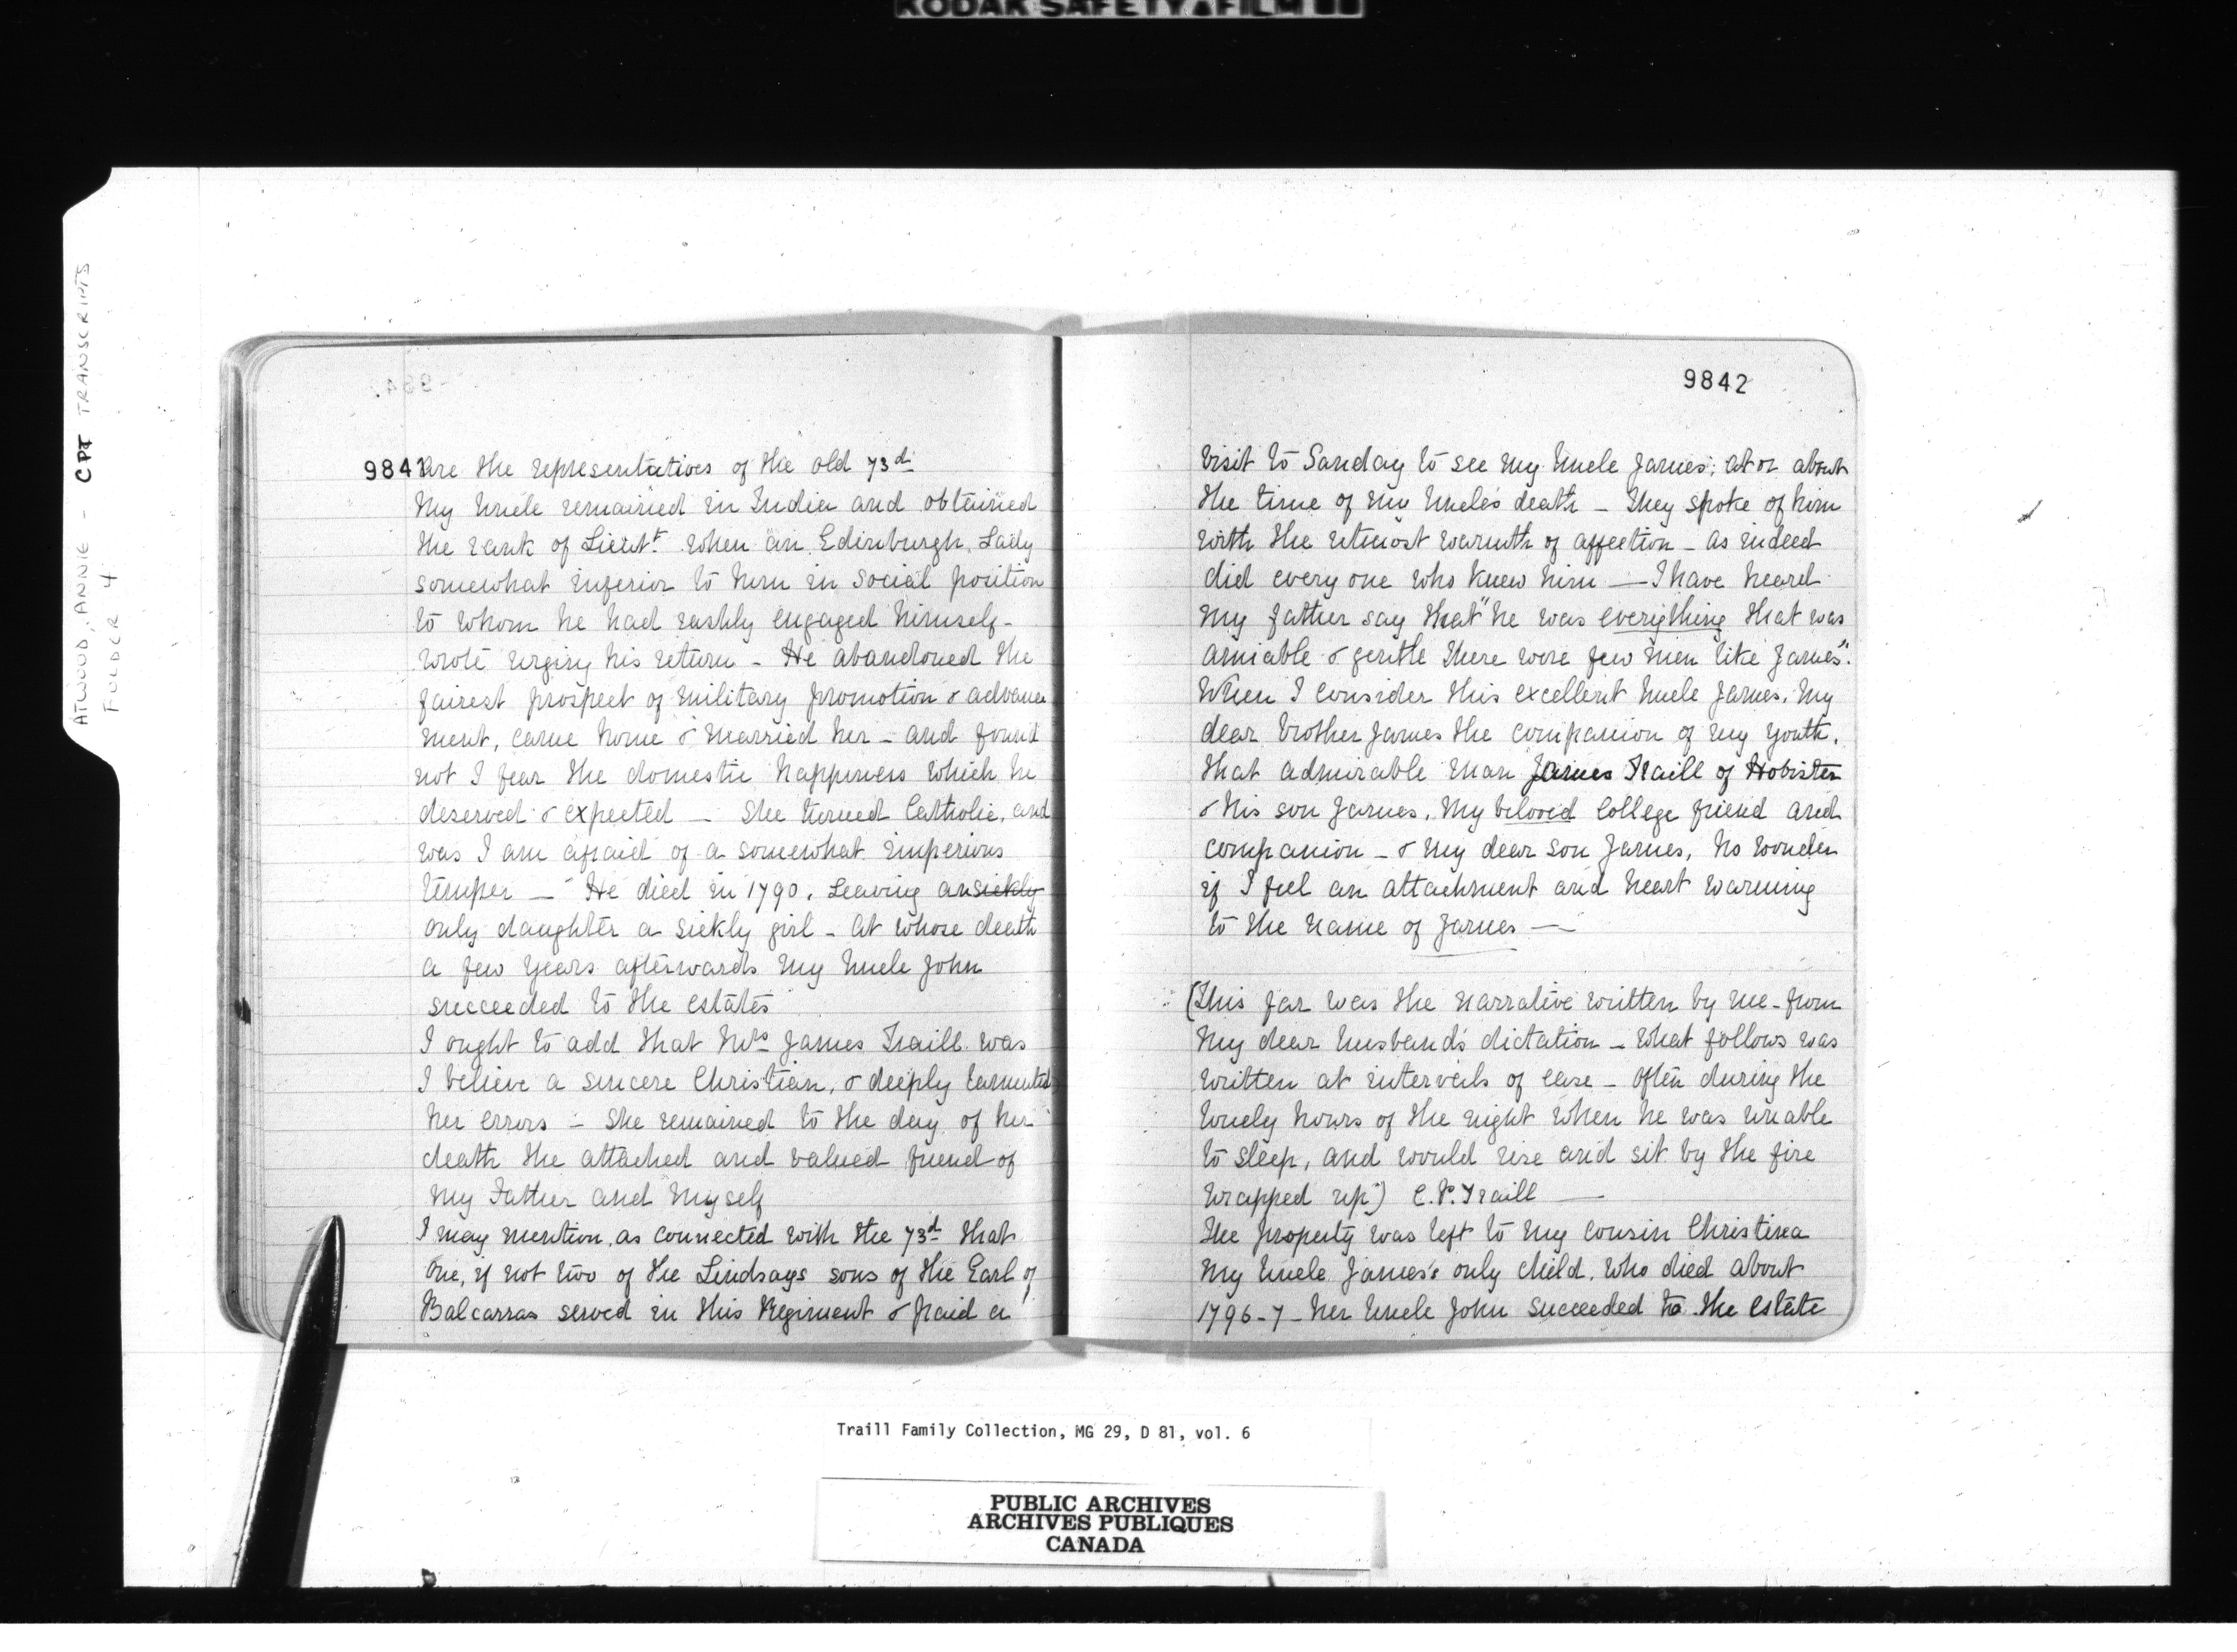 KODAK SAFETY FILM
ATWOOD, ANNE - CPT TRANSCRIPTS
FOLDER 4
9841
are the representatives of the old 73d
My Uncle remained in India and obtained
the rank of Lieutt. when an Edinburgh Lady
somewhat inferior to him in social position
to whom he had rashly engaged himself -
wrote urging his return - He abandoned the
fairest prospect of military promotion & advance
ment, came home & married her - and found
not I fear the domestic happiness which he
deserved & expected - She turned Catholic, and
was I am afraid of a somewhat imperious
temper - He died in 1790, leaving an sickly
only daughter a sickly girl - at whose death
a few years afterwards my Uncle John
succeeded to the estates
I ought to add that Mrs James Traill was
I believe a sincere Christian, & deeply lamented
her errors - She remained to the day of her
death the attached and valued friend of
My Father and Myself
I may mention, as connected with the 73d that
one, if not two of the Lindsays sons of the Earl of
Balcarras served in this Regiment & paid a
9842
visit to Sanday to see my Uncle James; at or about
the time of my Uncle's death - They spoke of him
with the utmost warmth of affection - as indeed
did every one who knew him — I have heard
my father say that "he was everything that was
amiable & gentle there were few men like James".
When I consider this excellent Uncle James, My
dear brother James the companion of my youth,
that admirable man James Traill of Hobister
& his son James, My beloved College friend and
companion - & my dear son James, no wonder
if I feel an attachment and heart warming
to the name of James —
(This far was the narrative written by me - from
My dear husband's dictation - What follows was
written at intervals of ease - Often during the
lonely hours of the night when he was unable
to sleep, and would rise and sit by the fire
wrapped up) C.P. Traill —
The property was left to my cousin Christina
My Uncle James's only child, who died about
1796-7 - her Uncle John succeeded to the estate
Traill Family Collection, MG 29, D 81, vol. 6
PUBLIC ARCHIVES
ARCHIVES PUBLIQUES
CANADA